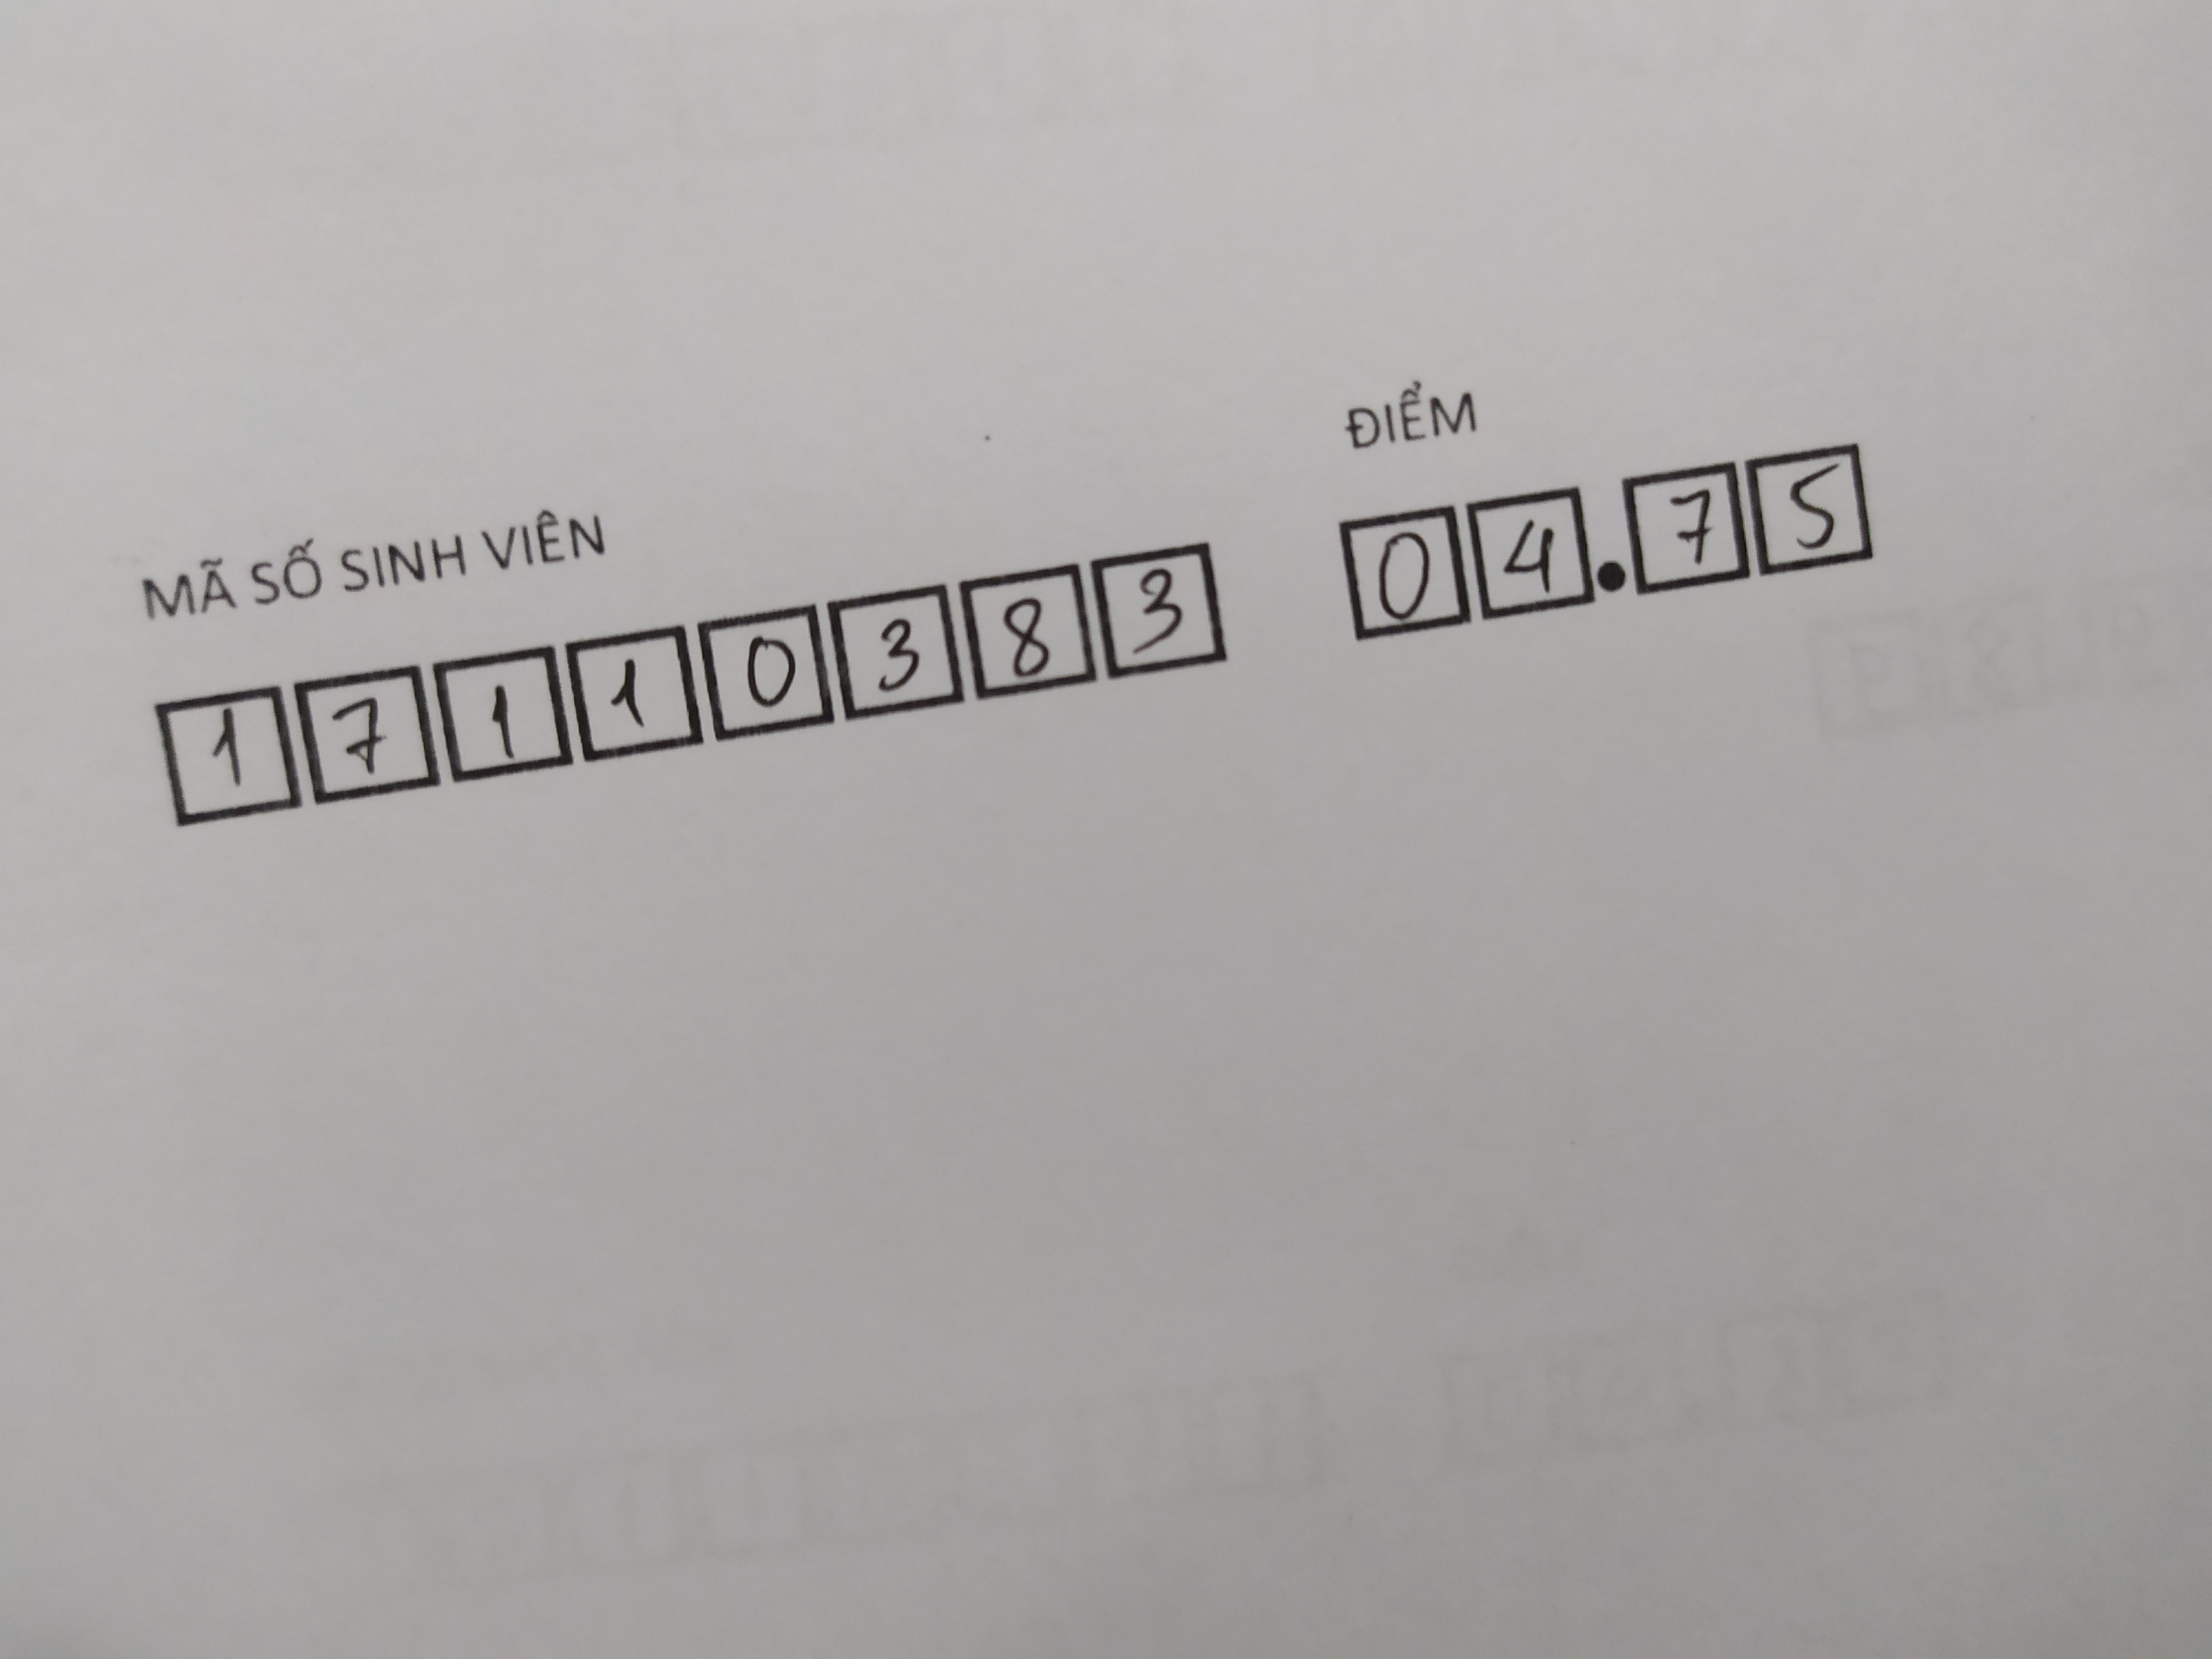 MÃ SỐ SINH VIÊN
17110383
ĐIỂM
04.75